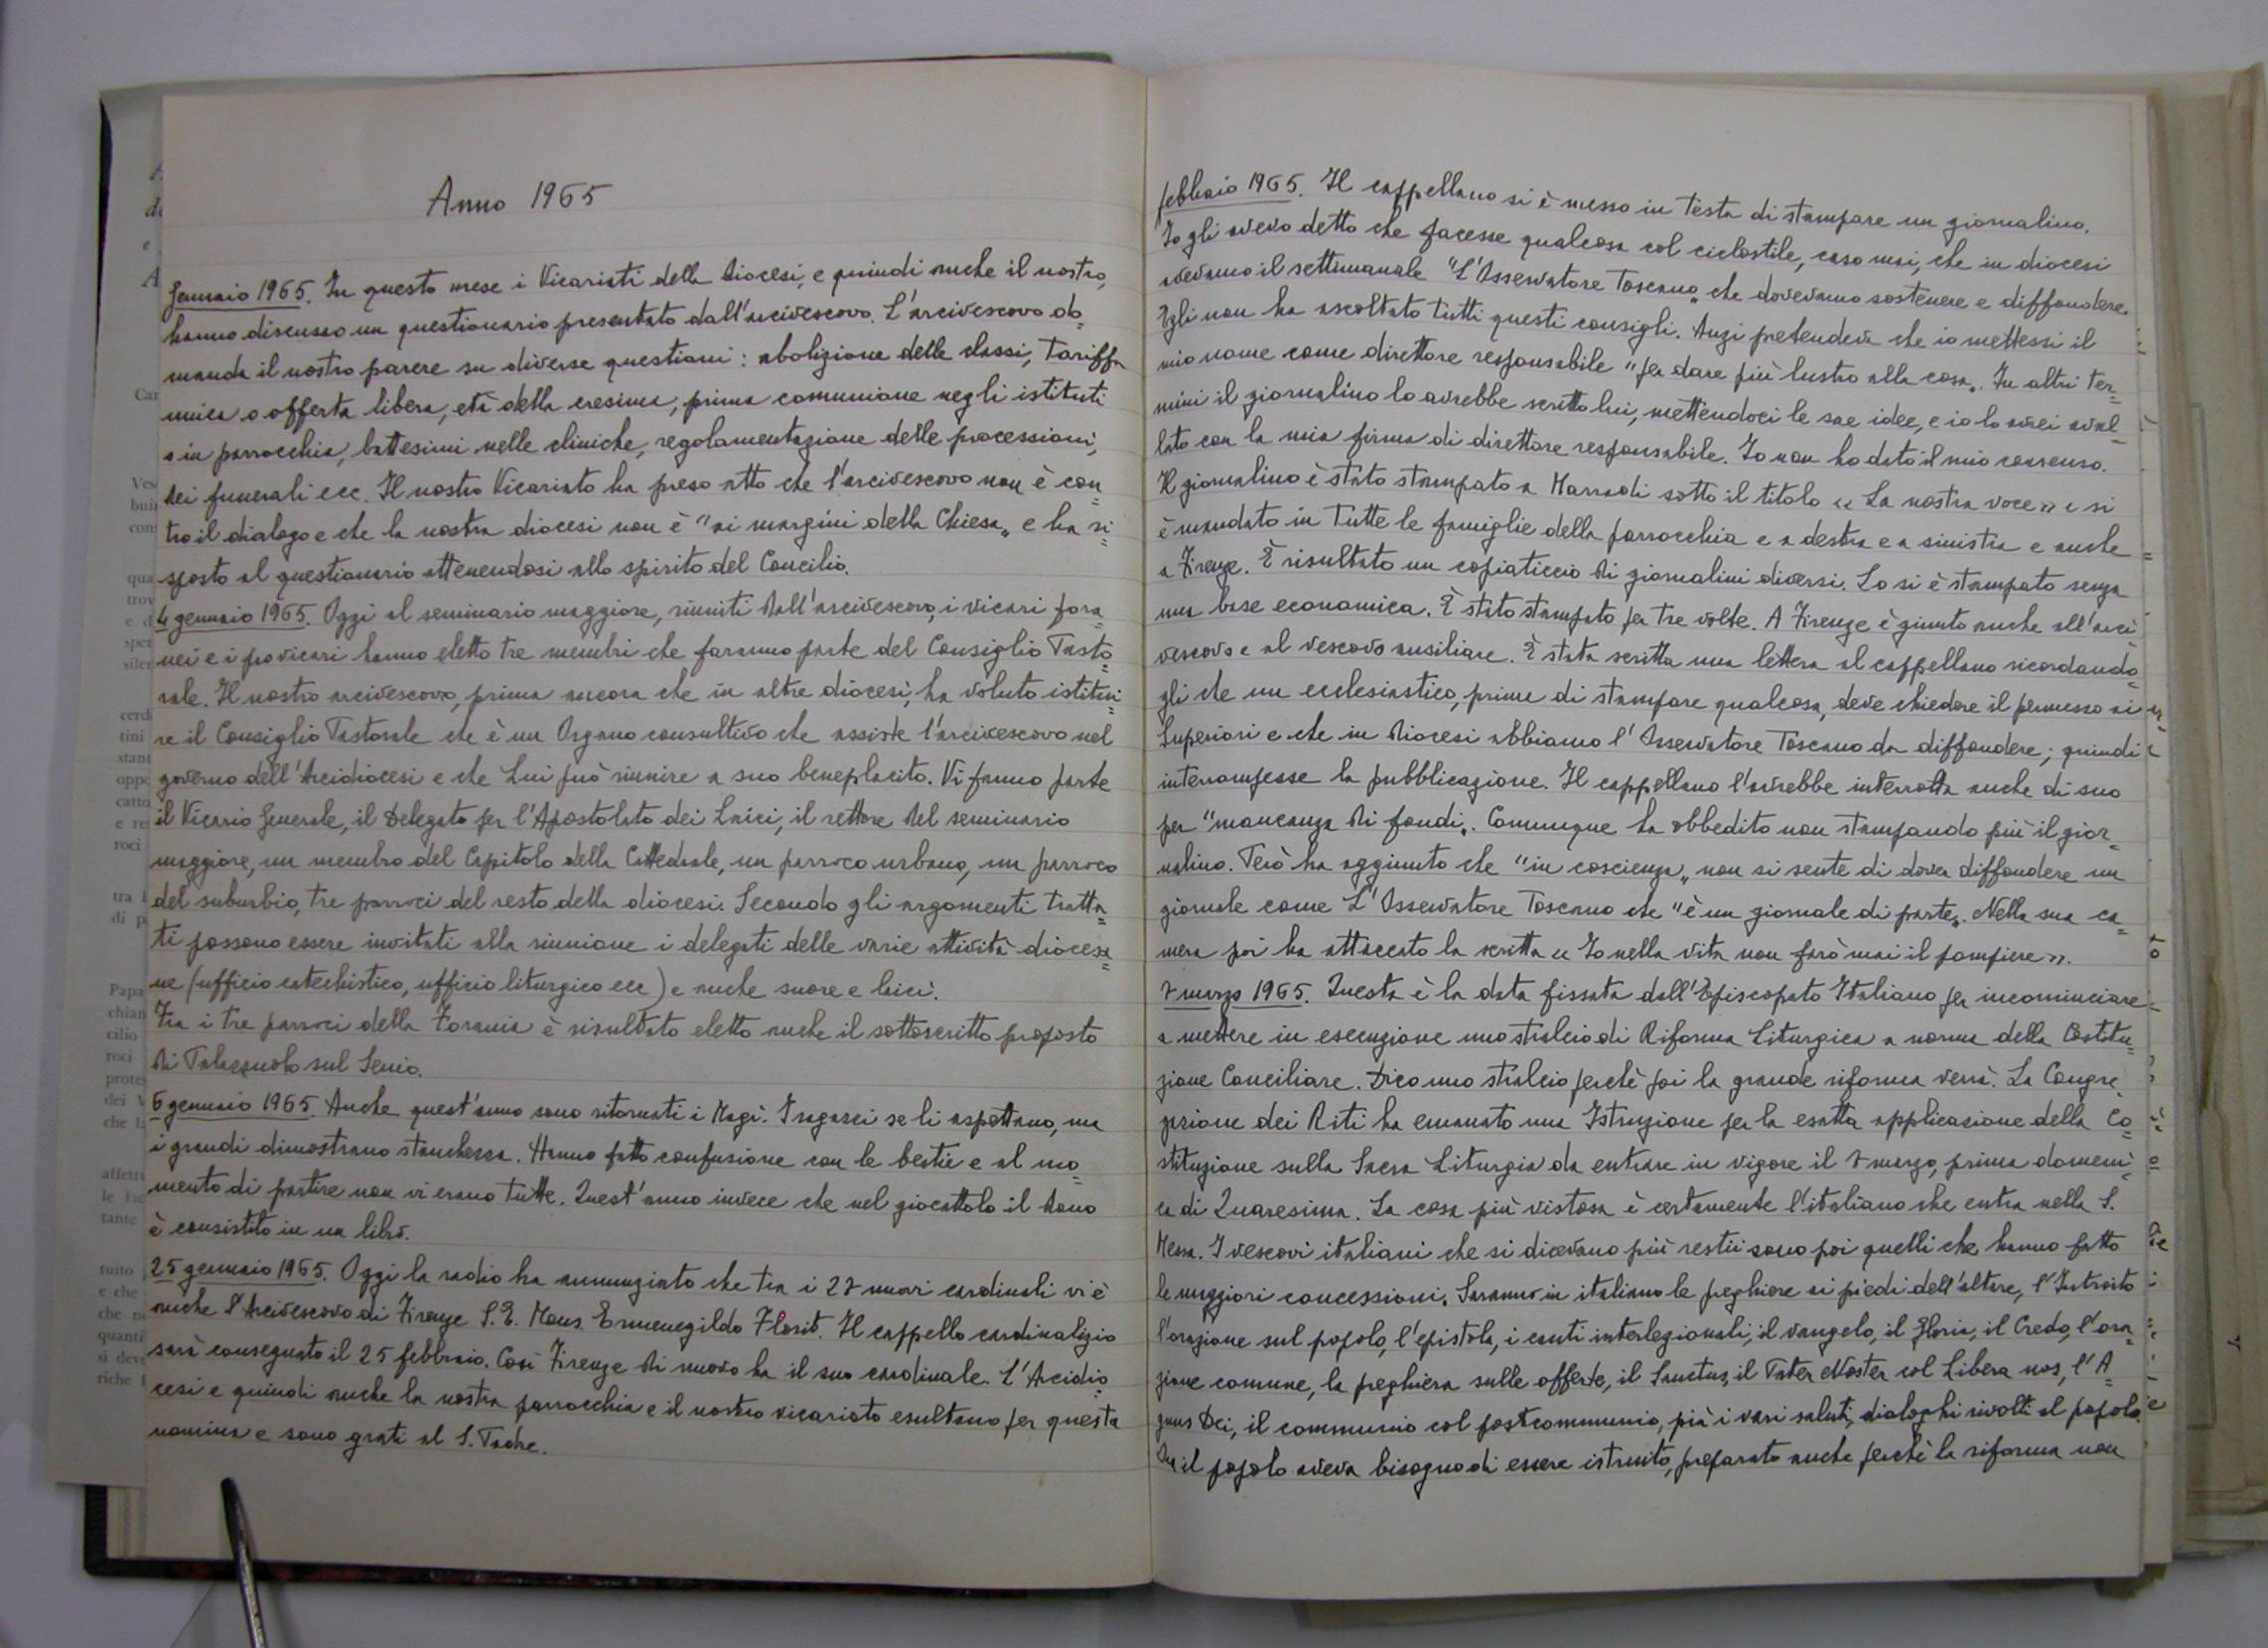 Anno 1965
Gennaio 1965. In questo mese i Vicariati della diocesi, e quindi anche il nostro,
hanno discusso un questionario presentato dall'arcivescovo. L'arcivescovo do=
manda il nostro parere su diverse questioni: abolizione delle classi, tariffa
unica o offerta libera, età della cresima, prima comunione negli istituti
o in parrocchia, battesimi nelle cliniche, regolamentazione delle processioni,
dei funerali ecc. Il nostro Vicariato ha preso atto che l'arcivescovo non è con=
tro il dialogo e che la nostra diocesi non è "ai margini della Chiesa" e ha ri=
sposto al questionario attenendosi allo spirito del Concilio.
4 gennaio 1965. Oggi al seminario maggiore, riuniti dall'arcivescovo, i vicari fora=
nei e i provicari hanno eletto tre membri che faranno parte del Consiglio Pasto=
rale. Il nostro arcivescovo, prima ancora che in altre diocesi, ha voluto istitui=
re il Consiglio Pastorale che è un Organo consultivo che assiste l'arcivescovo nel
governo dell'Arcidiocesi e che Lui può riunire a suo beneplacito. Vi fanno parte
il Vicario Generale, il Delegato per l'Apostolato dei Laici, il rettore del seminario
maggiore, un membro del Capitolo della Cattedrale, un parroco urbano, un parroco
del suburbio, tre parroci del resto della diocesi. Secondo gli argomenti tratta=
ti possono essere invitati alla riunione i delegati delle varie attività diocesa=
ne (ufficio catechistico, ufficio liturgico ecc) e anche suore e laici.
Fra i tre parroci della Forania è risultato eletto anche il sottoscritto proposto
di Palazzuolo sul Senio.
6 gennaio 1965. Anche quest'anno sono ritornati i Magi. I ragazzi se li aspettano, ma
i grandi dimostrano stanchezza. Hanno fatto confusione con le bestie e al mo=
mento di partire non vi erano tutte. Quest'anno invece che nel giocattolo il dono
è consistito in un libro.
25 gennaio 1965. Oggi la radio ha annunziato che tra i 27 nuovi cardinali vi è
anche l'Arcivescovo di Firenze S.E. Mons. Ermenegildo Florit. Il cappello cardinalizio
sarà consegnato il 25 febbraio. Così Firenze di nuovo ha il suo cardinale. L'Arcidio=
cesi e quindi anche la nostra parrocchia e il nostro vicariato esultano per questa
nomina e sono grati al S. Padre.
febbraio 1965. Il cappellano si è messo in testa di stampare un giornalino.
Io gli avevo detto che facesse qualcosa col ciclostile, caso mai, che in diocesi
avevamo il settimanale "L'Osservatore Toscano" che dovevamo sostenere e diffondere.
Egli non ha ascoltato tutti questi consigli. Anzi pretendeva che io mettessi il
mio nome come direttore responsabile "per dare più lustro alla cosa". In altri ter=
mini il giornalino lo avrebbe scritto lui, mettendoci le sue idee, e io lo avrei aval=
lato con la mia firma di direttore responsabile. Io non ho dato il mio consenso.
Il giornalino è stato stampato a Marradi sotto il titolo « La nostra voce » e si
è mandato in tutte le famiglie della parrocchia e a destra e a sinistra e anche
a Firenze. È risultato un copiaticcio di giornalini diversi. Lo si è stampato senza
una base economica. È stato stampato per tre volte. A Firenze è giunto anche all'arci
vescovo e al vescovo ausiliare. È stata scritta una lettera al cappellano ricordando=
gli che un ecclesiastico, prima di stampare qualcosa, deve chiedere il permesso ai
Superiori e che in diocesi abbiamo l'Osservatore Toscano da diffondere; quindi
interrompesse la pubblicazione. Il cappellano l'avrebbe interrotta anche di suo
per "mancanza di fondi". Comunque ha obbedito non stampando più il gior=
nalino. Però ha aggiunto che "in coscienza" non si sente di dover diffondere un
giornale come L'Osservatore Toscano che "è un giornale di parte". Nella sua ca=
mera poi ha attaccato la scritta « Io nella vita non farò mai il pompiere ».
7 marzo 1965. Questa è la data fissata dall'Episcopato Italiano per incominciare
a mettere in esecuzione uno stralcio di Riforma Liturgica a norma della Costitu=
zione Conciliare. Dico uno stralcio perchè poi la grande riforma verrà. La Congre=
gazione dei Riti ha emanato una Istruzione per la esatta applicazione della Co=
stituzione sulla Sacra Liturgia da entrare in vigore il 7 marzo, prima domeni=
ca di Quaresima. La cosa più vistosa è certamente l'italiano che entra nella S.
Messa. I vescovi italiani che si dicevano più restii sono poi quelli che hanno fatto
le maggiori concessioni. Saranno in italiano le preghiere ai piedi dell'altare, l'Introito
l'orazione sul popolo, l'epistola, i canti interlezionali, il vangelo, il Gloria, il Credo, l'ora=
zione comune, la preghiera sulle offerte, il Sanctus, il Pater Noster col Libera nos, l'A=
gnus Dei, il communio col postcommunio, più i vari saluti, dialoghi rivolti al popolo.
Ma il popolo aveva bisogno di essere istruito, preparato anche perchè la riforma non